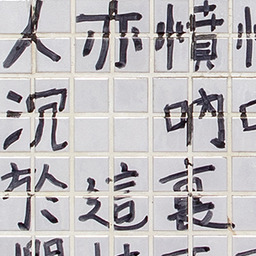 人亦憤
沉 吶
於這裏